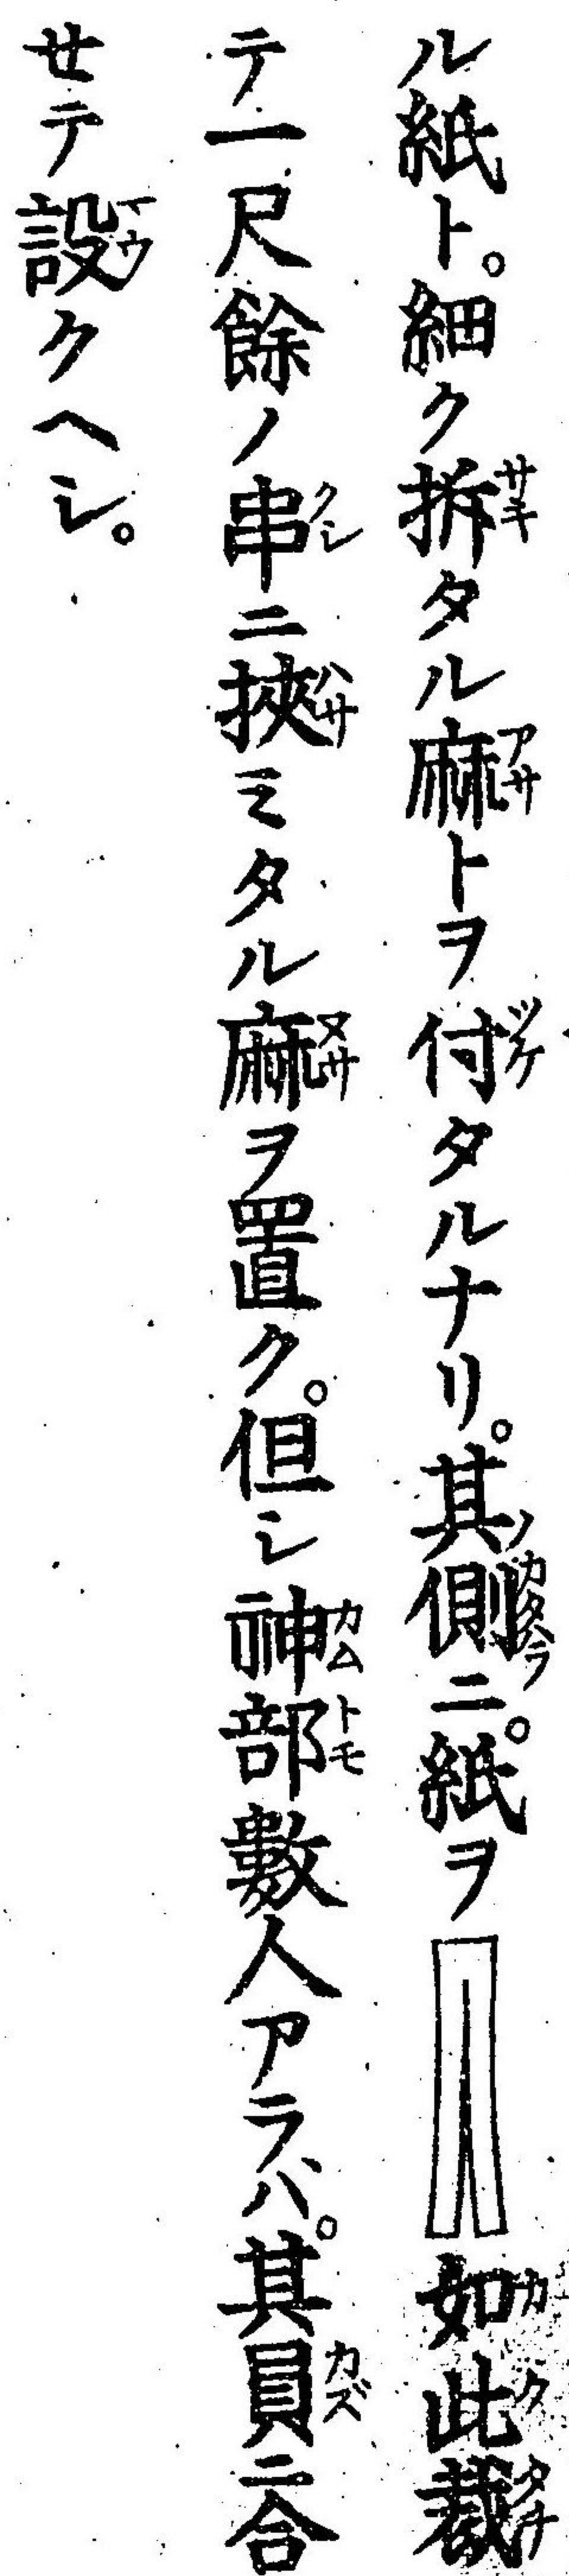 ル紙ト。細ク拆タル麻トヲ付タルナリ。其側ニ。紙ヲ如此裁
テ一尺餘ノ串ニ挾ミタル麻ヲ置ク。但シ神部數人アラバ。其員ニ合
せテ設クヘシ。